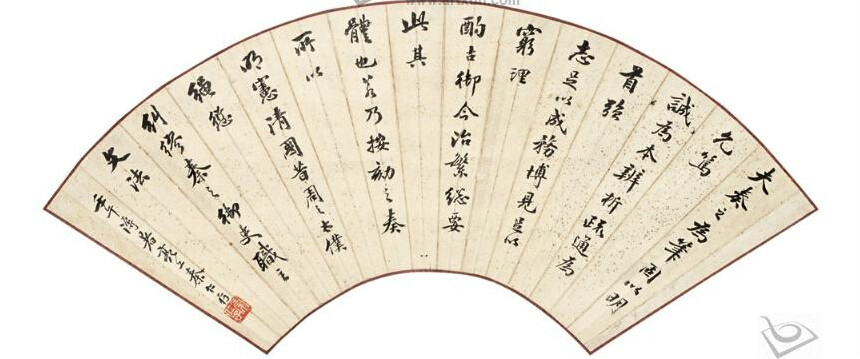 夫奏之為筆固以明
允篤
誠為本辨析疏通為
首強
志足以成務博見足以
窮理
酌古御今治繁總要
此其
體也若乃按劾之奏
所以
明憲清國昔周之太僕
繩愆
糾繆秦之御史職主
文法
壬午